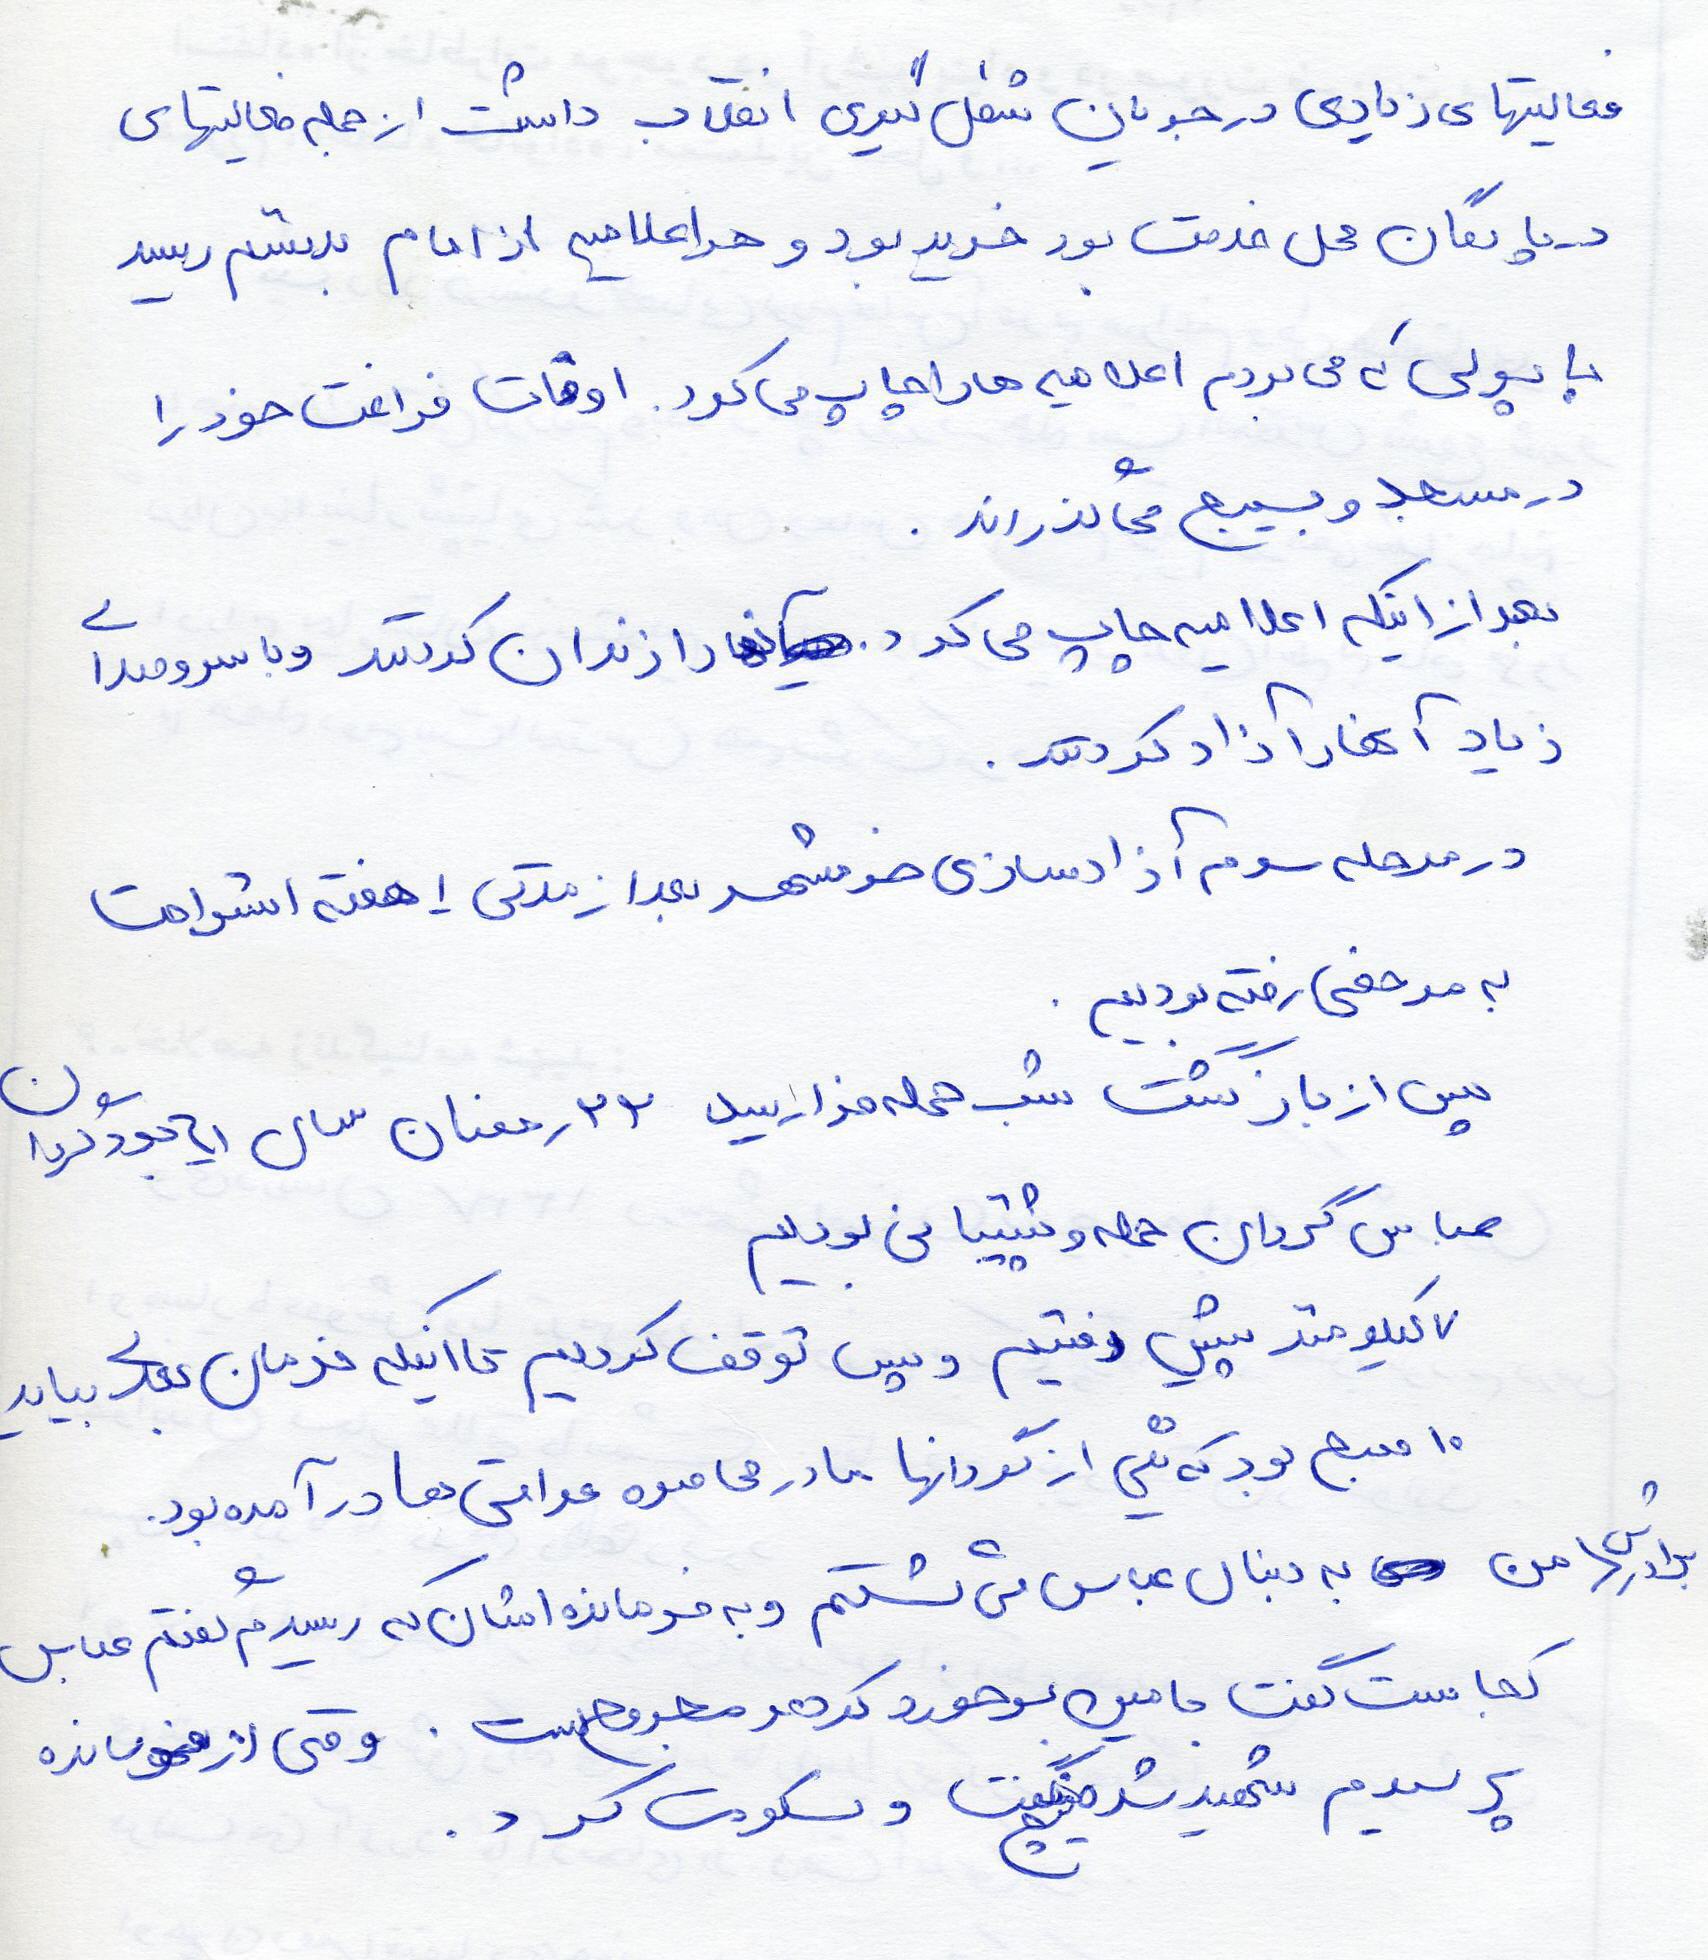 فعالیتهای زیادی در جریان شکل گیری انقلاب داشت از جمله فعالیتهای
در پادگان محل خدمت بود خرید بود و هر اعلامیه از امام بدستم رسید
با پولی که می بردم اعلامیه ها را چاپ می کرد. اوقات فراغت خود را
در مسجد و بسیج می گذراند.
بعد از اینکه اعلامیه چاپ می کرد. آنها را زندان کردند و با سر و صدای
زیاد آنها را آزاد کردند.
در مرحله سوم آزادسازی خرمشهر بعد از مدتی ۱ هفته استراحت
به مرخصی رفته بودیم.
پس از بازگشت شب حمله فرا رسید ۲۳ رمضان سال
عباس گردان حمله و پشتیبانی بودیم
۷ کیلومتر پیش رفتیم و سپس توقف کردیم تا اینکه فرمان بعدی بیاید
۱۰ صبح بود که یکی از گردانها ما در محاصره عراقی ها در آمده بود.
برادرش من به دنبال عباس می گشتم و به فرمانده اشان که رسیدم گفتم عباس
کجاست گفت با مین برخورد کرده و مجروح است. وقتی از فرمانده
پرسیدم شهید شد گفت و سکوت کرد.